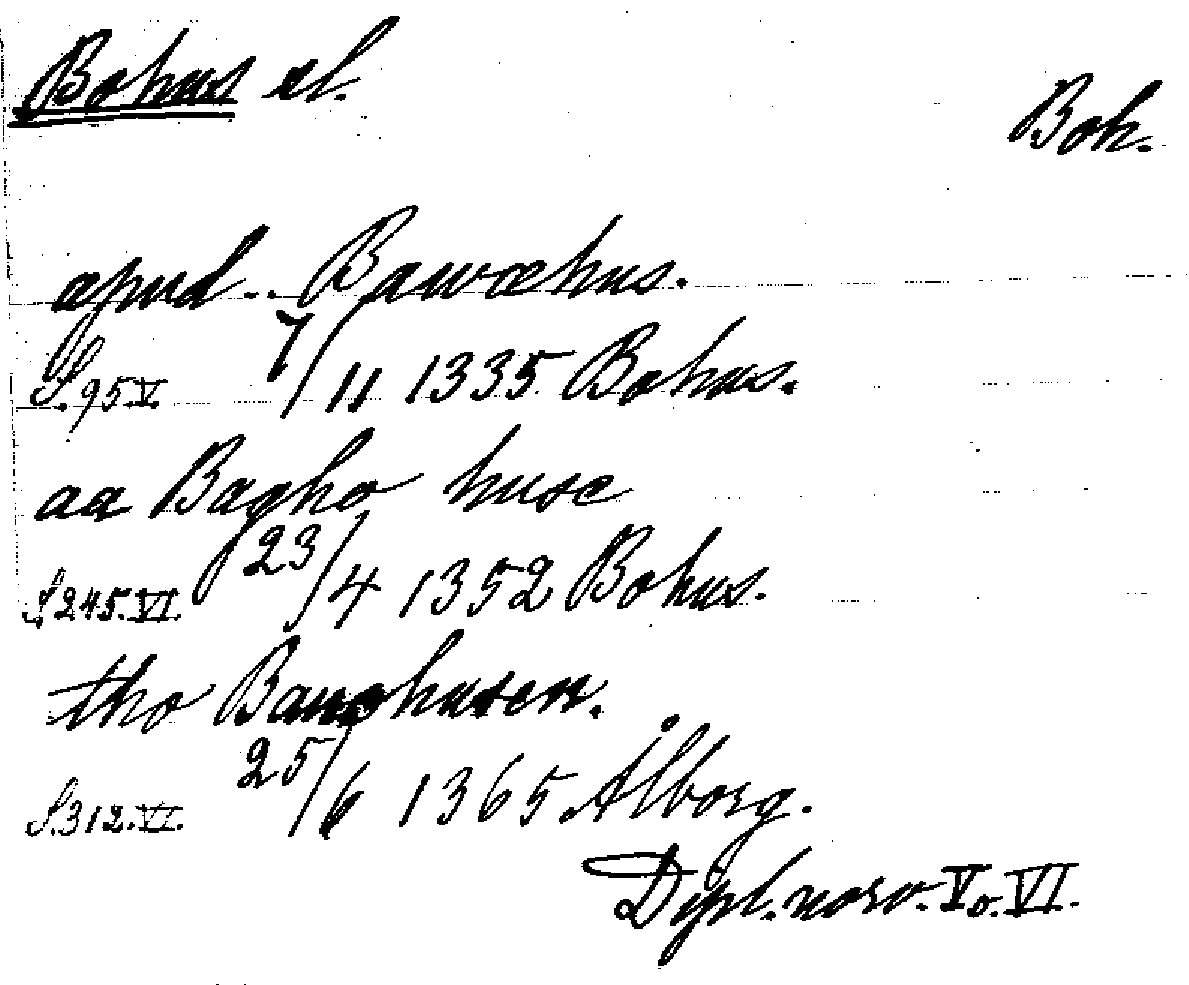 Bohus sl.
Boh.
apud .. Bawæhus.
S. 95 V. 7/11 1335 Bohus.
aa Bagho huse
S. 245. VI. 23/4 1352 Bohus.
tho Bawghusen.
S. 312. VI. 25/6 1365 Ålborg.
Dipl. norv. V o. VI.